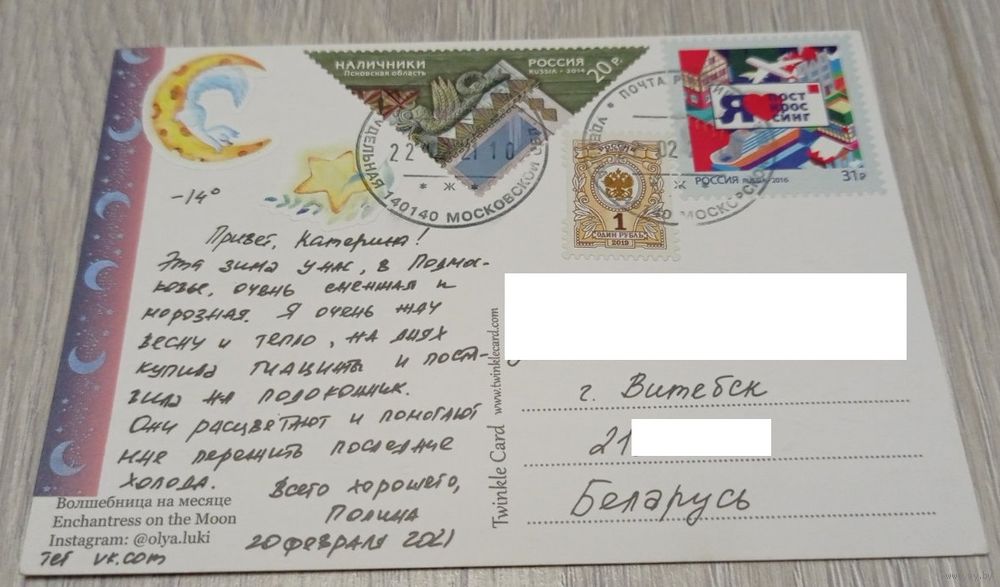 НАЛИЧНИКИ
Псковская область
РОССИЯ
RUSSIA - 2014
20 р.
УДЕЛЬНАЯ 140140 МОСКОВСКОЙ ОБЛ
22
21 10
ПОЧТА РОССИИ
02
МОСКОВСКОЙ
1
ОДИН РУБЛЬ
2019
Я
пост
кросс
синг
РОССИЯ RUSSIA-2016
31р
-14°
Привет, Катерина!
Эта зима у нас, в Подмос-
ковье, очень снежная и
морозная. Я очень жду
весну и тепло, на днях
купила гиацинты и поста-
вила на подоконник.
Они расцветают и помогают
мне пережить последние
холода.
Всего хорошего,
Полина
20 февраля 2021
Волшебница на месяце
Enchantress on the Moon
Instagram: @olya.luki
vk.com
Twinkle Card www.twinklecard.com
г. Витебск
21
Беларусь